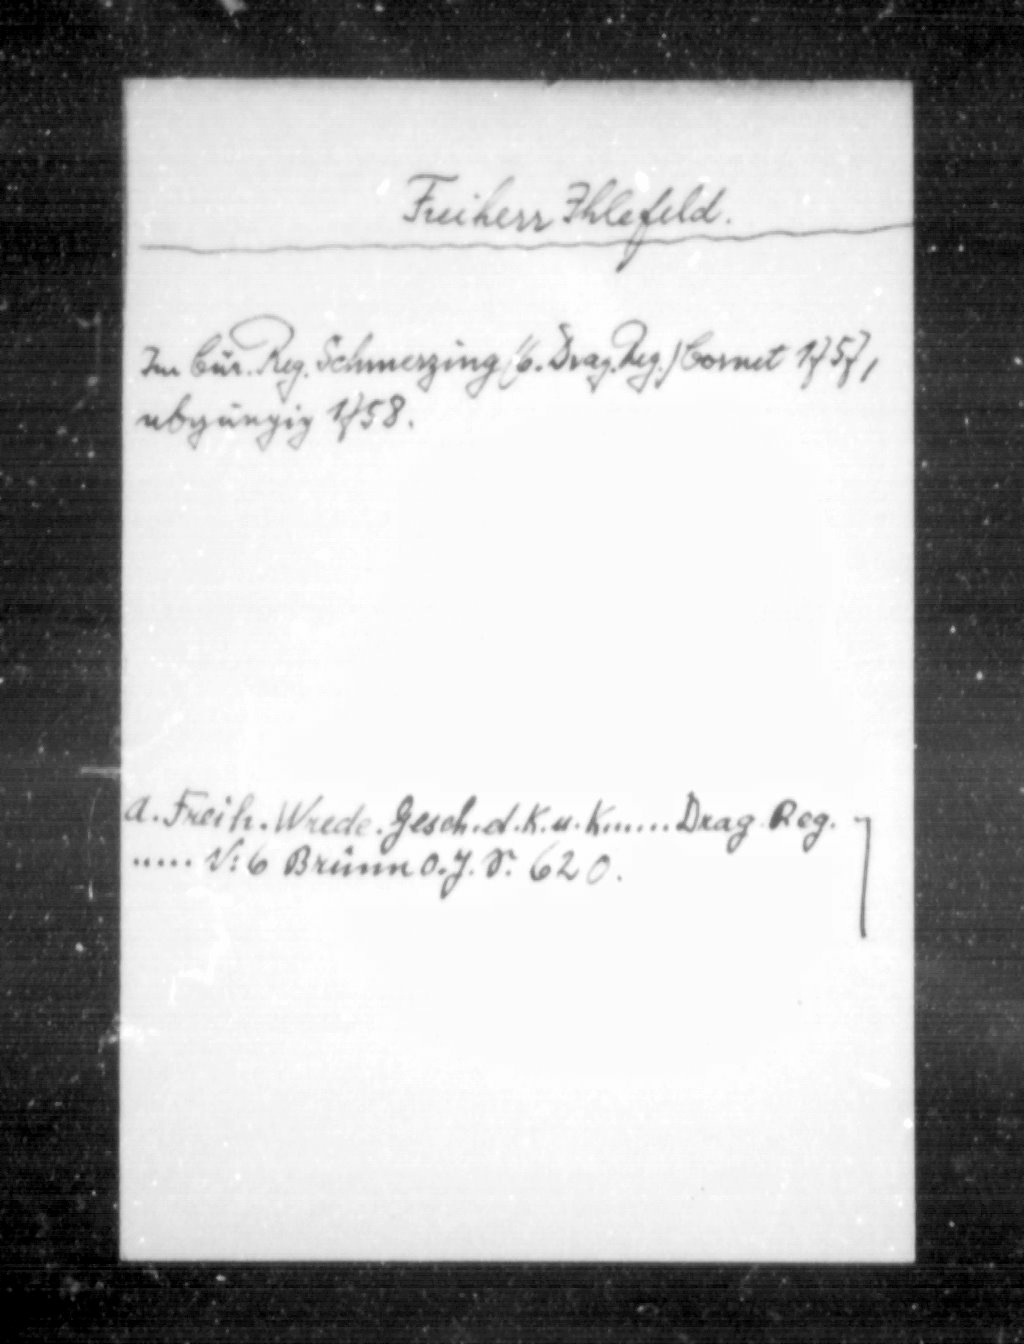 Freiherr Ihlefeld.
Im Cür. Reg. Schmerzing (6. Drag. Reg.) Cornet 1757,
abgängig 1758.
A. Freih. Wrede. Gesch. d. K. u. K...... Drag Reg.
..... N: 6 Brünn O. J. S. 620.